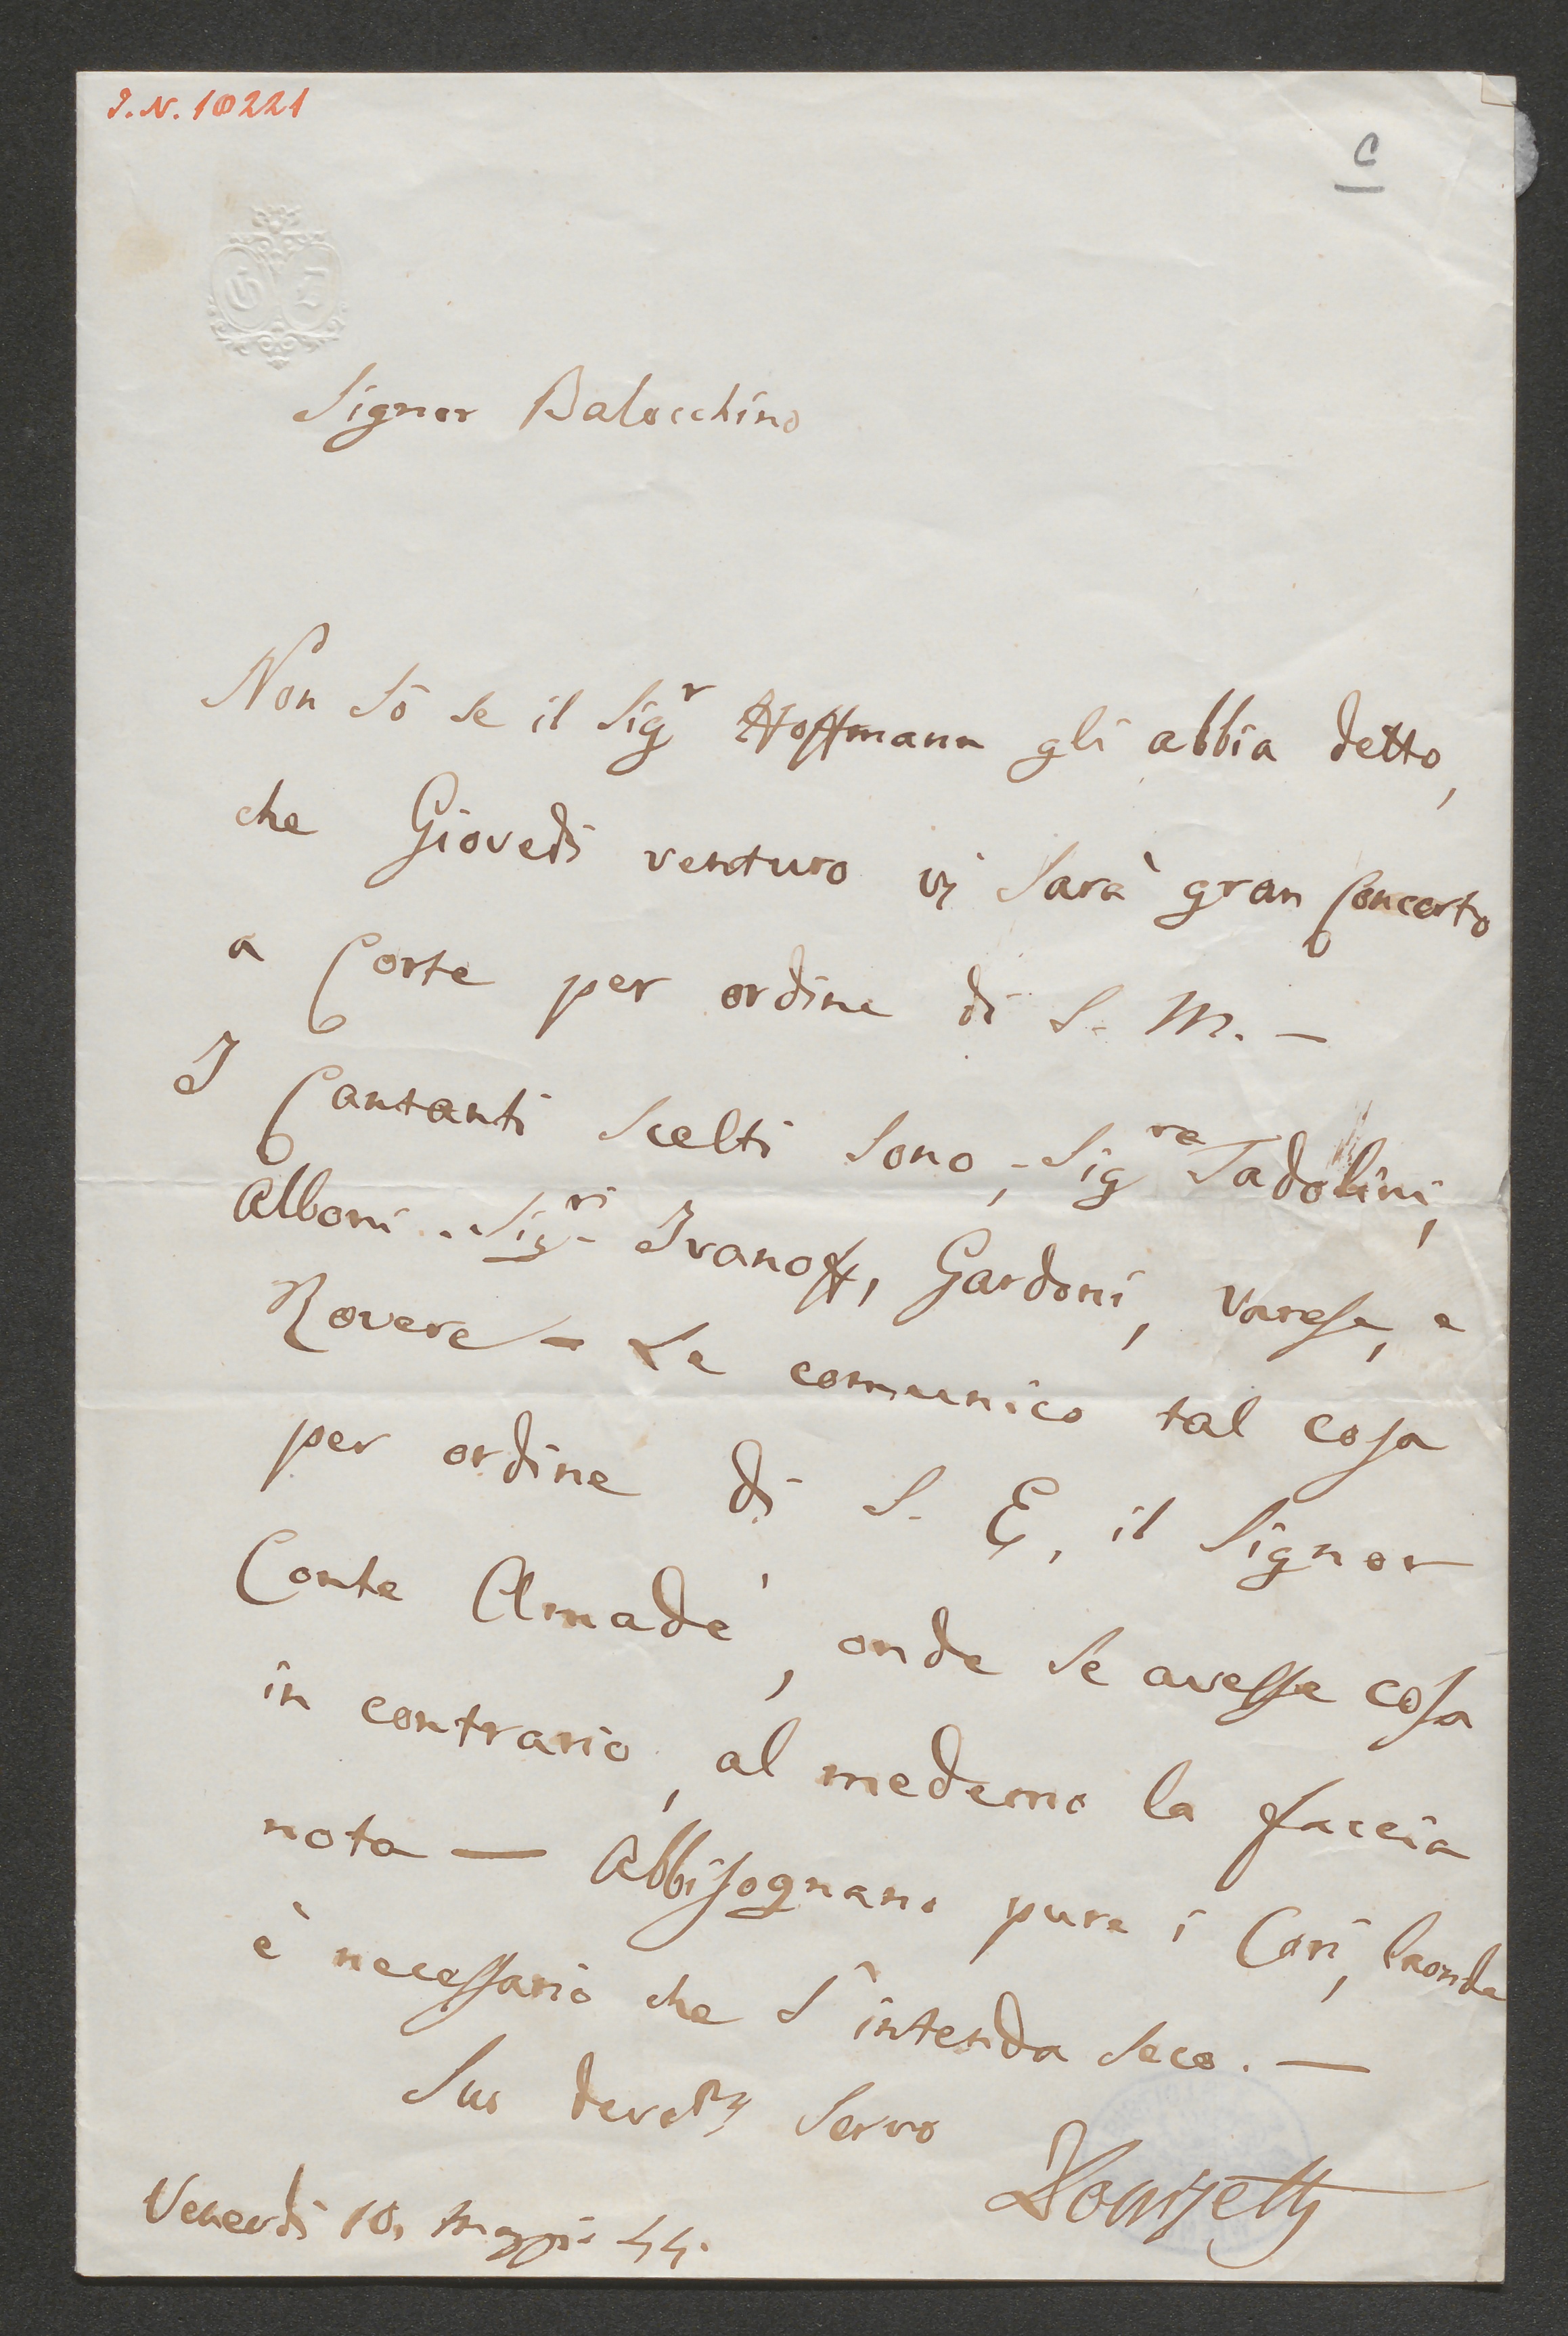 I.N. 10221
C
G D
Signor Balocchino
Non sò se il Sigr Hoffmann gli abbia detto,
che Giovedì venturo vi sarà gran Concerto
a Corte per ordine di S. M. —
I Cantanti scelti sono, - Sigre Tadolini,
Alboni - Sigri Ivanoff, Gardoni, Varese, e
Rovere — Le comunico tal cosa
per ordine di S. E. il Signor
Conte Amadè, onde se avesse cosa
in contrario, al medemo la faccia
nota — Abbisognano pure i Cori, laonde
è necessario che s'intenda seco. —
Suo devotmo servo
Donizetti
Venerdì 10. Maggio 44.